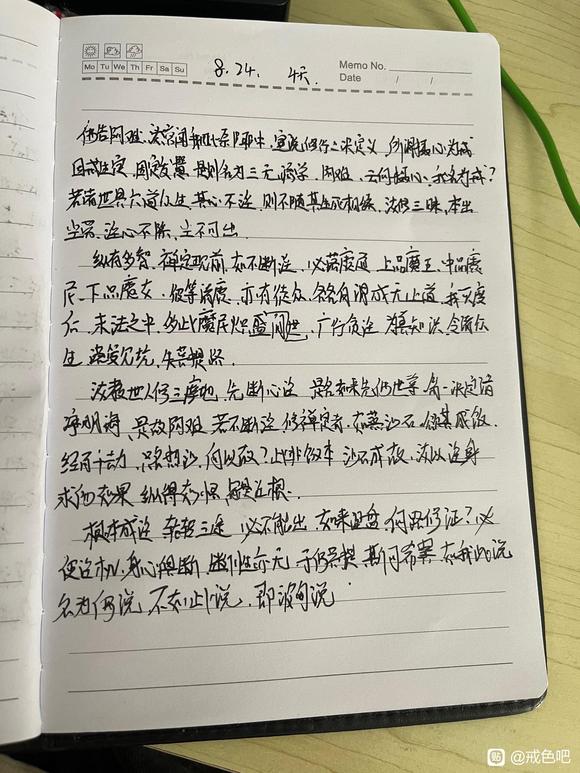 Mo Tu We Th Fr Sa Su
8.24. 4天.
Memo No.
Date / /
佛告阿难,汝常闻我毗奈耶中,宣说修行三决定义,所谓摄心为戒
因戒生定,因定发慧,是则名为三无漏学.阿难,云何摄心,我名为戒?
若诸世界六道众生,其心不淫,则不随其生死相续,汝修三昧,本出
尘劳,淫心不除,尘不可出.
纵有多智,禅定现前,如不断淫,必落魔道,上品魔王,中品魔
民,下品魔女,彼等诸魔,亦有徒众,各各自谓成无上道,我灭度
后,末法之中,多此魔民,炽盛间世,广行贪淫,为善知识,令诸众
生,落爱见坑,失菩提路.
汝教世人修三摩地,先断心淫,是名如来先佛世尊,第一决定清
净明诲,是故阿难,若不断淫,修禅定者,如蒸沙石,欲其成饭,
经百千劫,只名热沙,何以故?此非饭本,沙石成故,汝以淫身
求佛妙果,纵得妙悟,皆是淫根.
根本成淫,轮转三途,必不能出,如来涅盘,何路修证?必
使淫机,身心俱断,断性亦无,于佛菩提,斯可希冀,如我此说
名为佛说,不如此说,即波旬说.
贴 @戒色吧